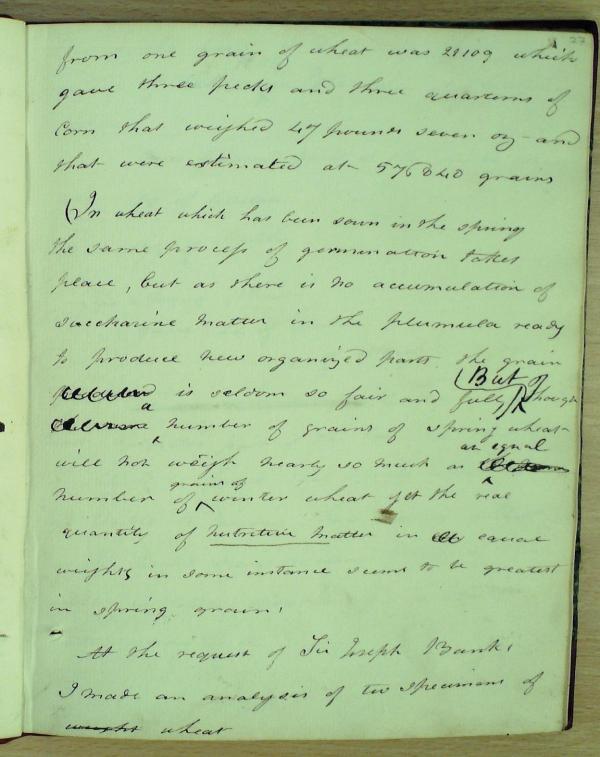 27
from one grain of wheat was 21109 which
gave three pecks and three quarterns of
Corn that weighed 47 pounds seven oz - and
that were estimated at 576840 grains
(In wheat which has been sown in the spring
the same process of germination takes
place, but as there is no accumulation of
saccharine matter in the plumula ready
to produce new organized parts the grain
is seldom so fair and full, (But of though
a number of grains of spring wheat
will not weigh nearly so much as an equal
number of grains of winter wheat yet the real
quantity of nutritive matter in equal
weights in some instance seems to be greatest
in spring grain.
At the request of Sir Joseph Banks
I made an analysis of two specimens of
weight wheat